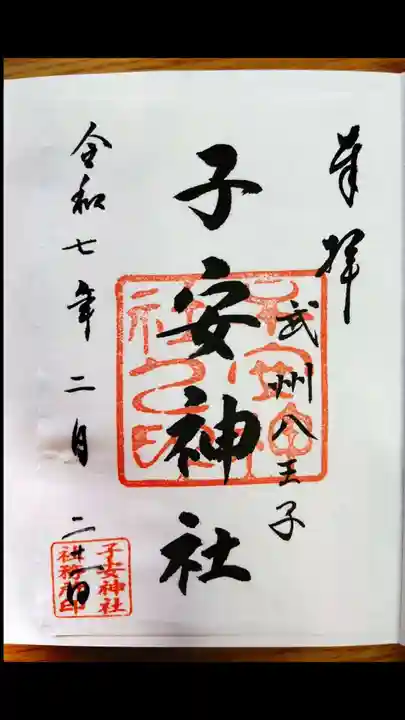 奉拝
武州八王子
子安神社
令和七年二月二
子安神社
社務所印